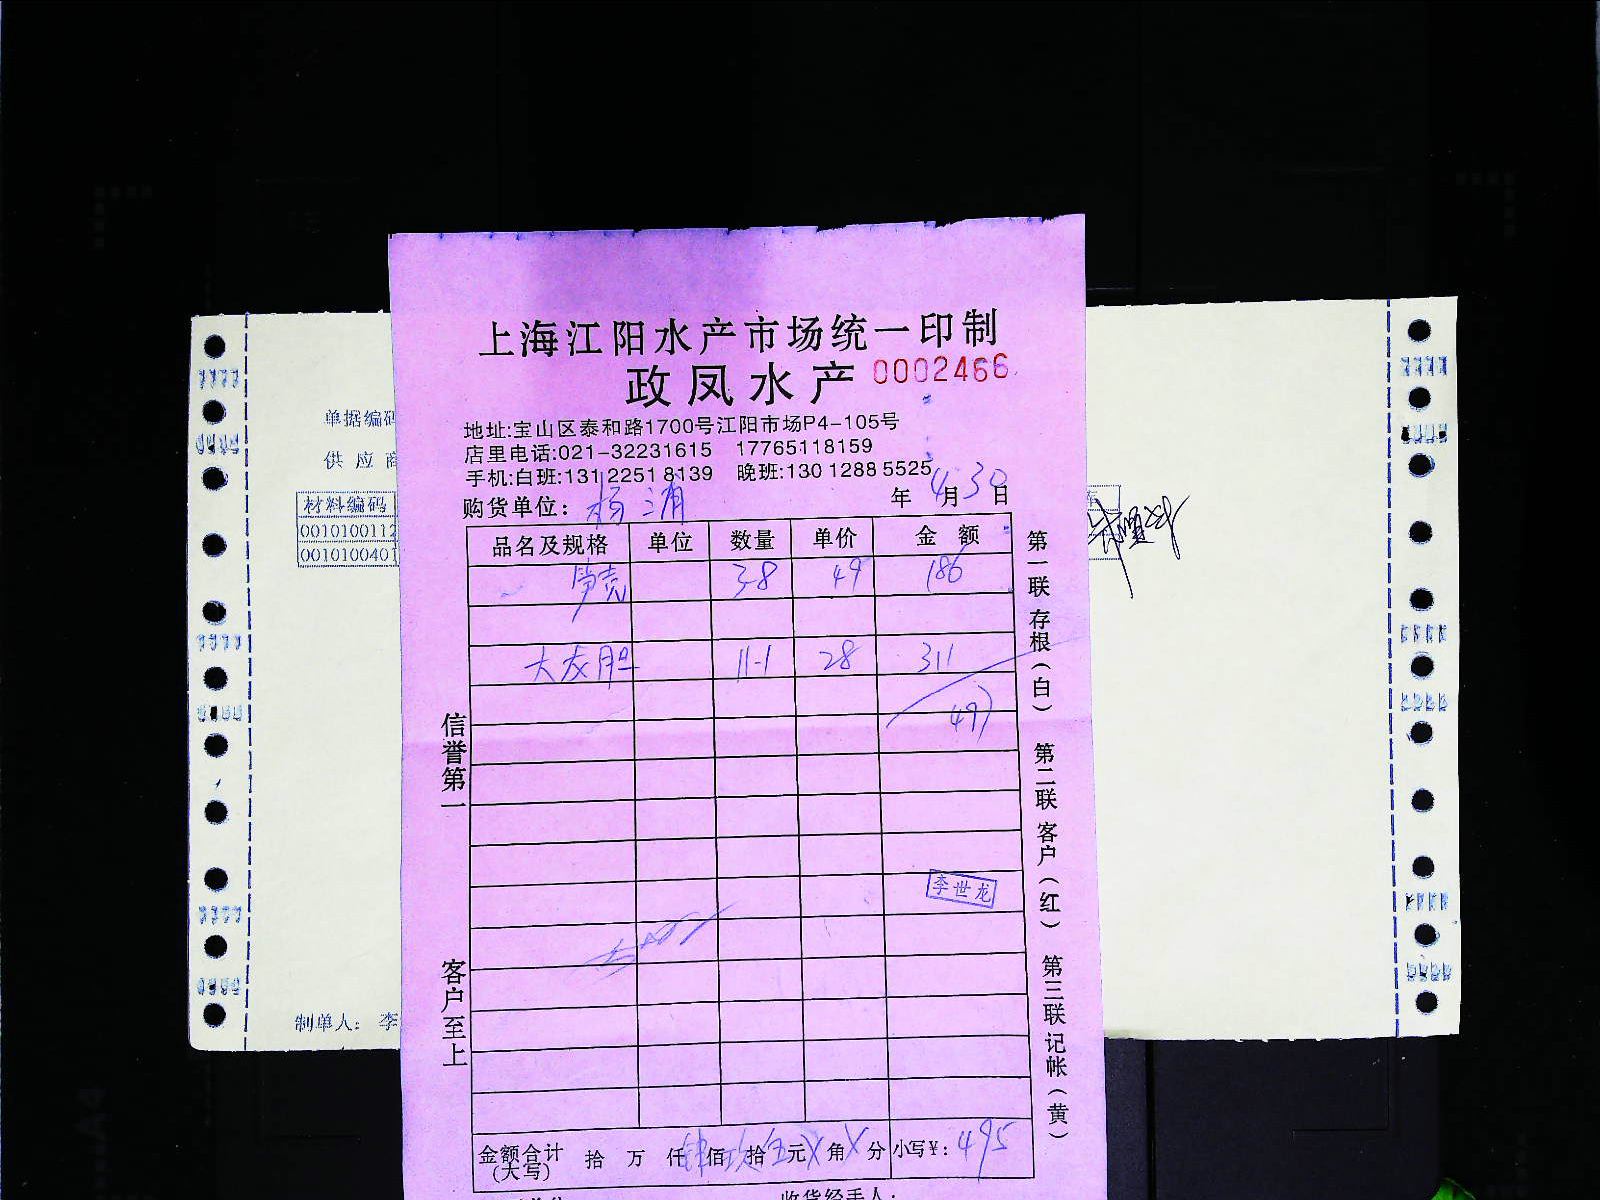 上海江阳水产市场统一印制
政凤水产 0002466
地址:宝山区泰和路1700号江阳市场P4-105号
店里电话:021-32231615 17765118159
手机:白班:131 2251 8139 晚班:130 1288 5525
购货单位: 杨 年 4月30日
品名及规格 单位 数量 单价 金额
笋壳 3-8 49 186
大友胆 11-1 28 311
497
李世龙
金额合计(大写) 拾 万 仟 肆佰 玖拾 伍元 X角 X分 小写¥: 495
收货经手人:
信誉第一
客户至上
第一联存根(白)
第二联客户(红)
第三联记帐(黄)
单据编码
供应商
材料编码
0010100112
0010100401
制单人: 李